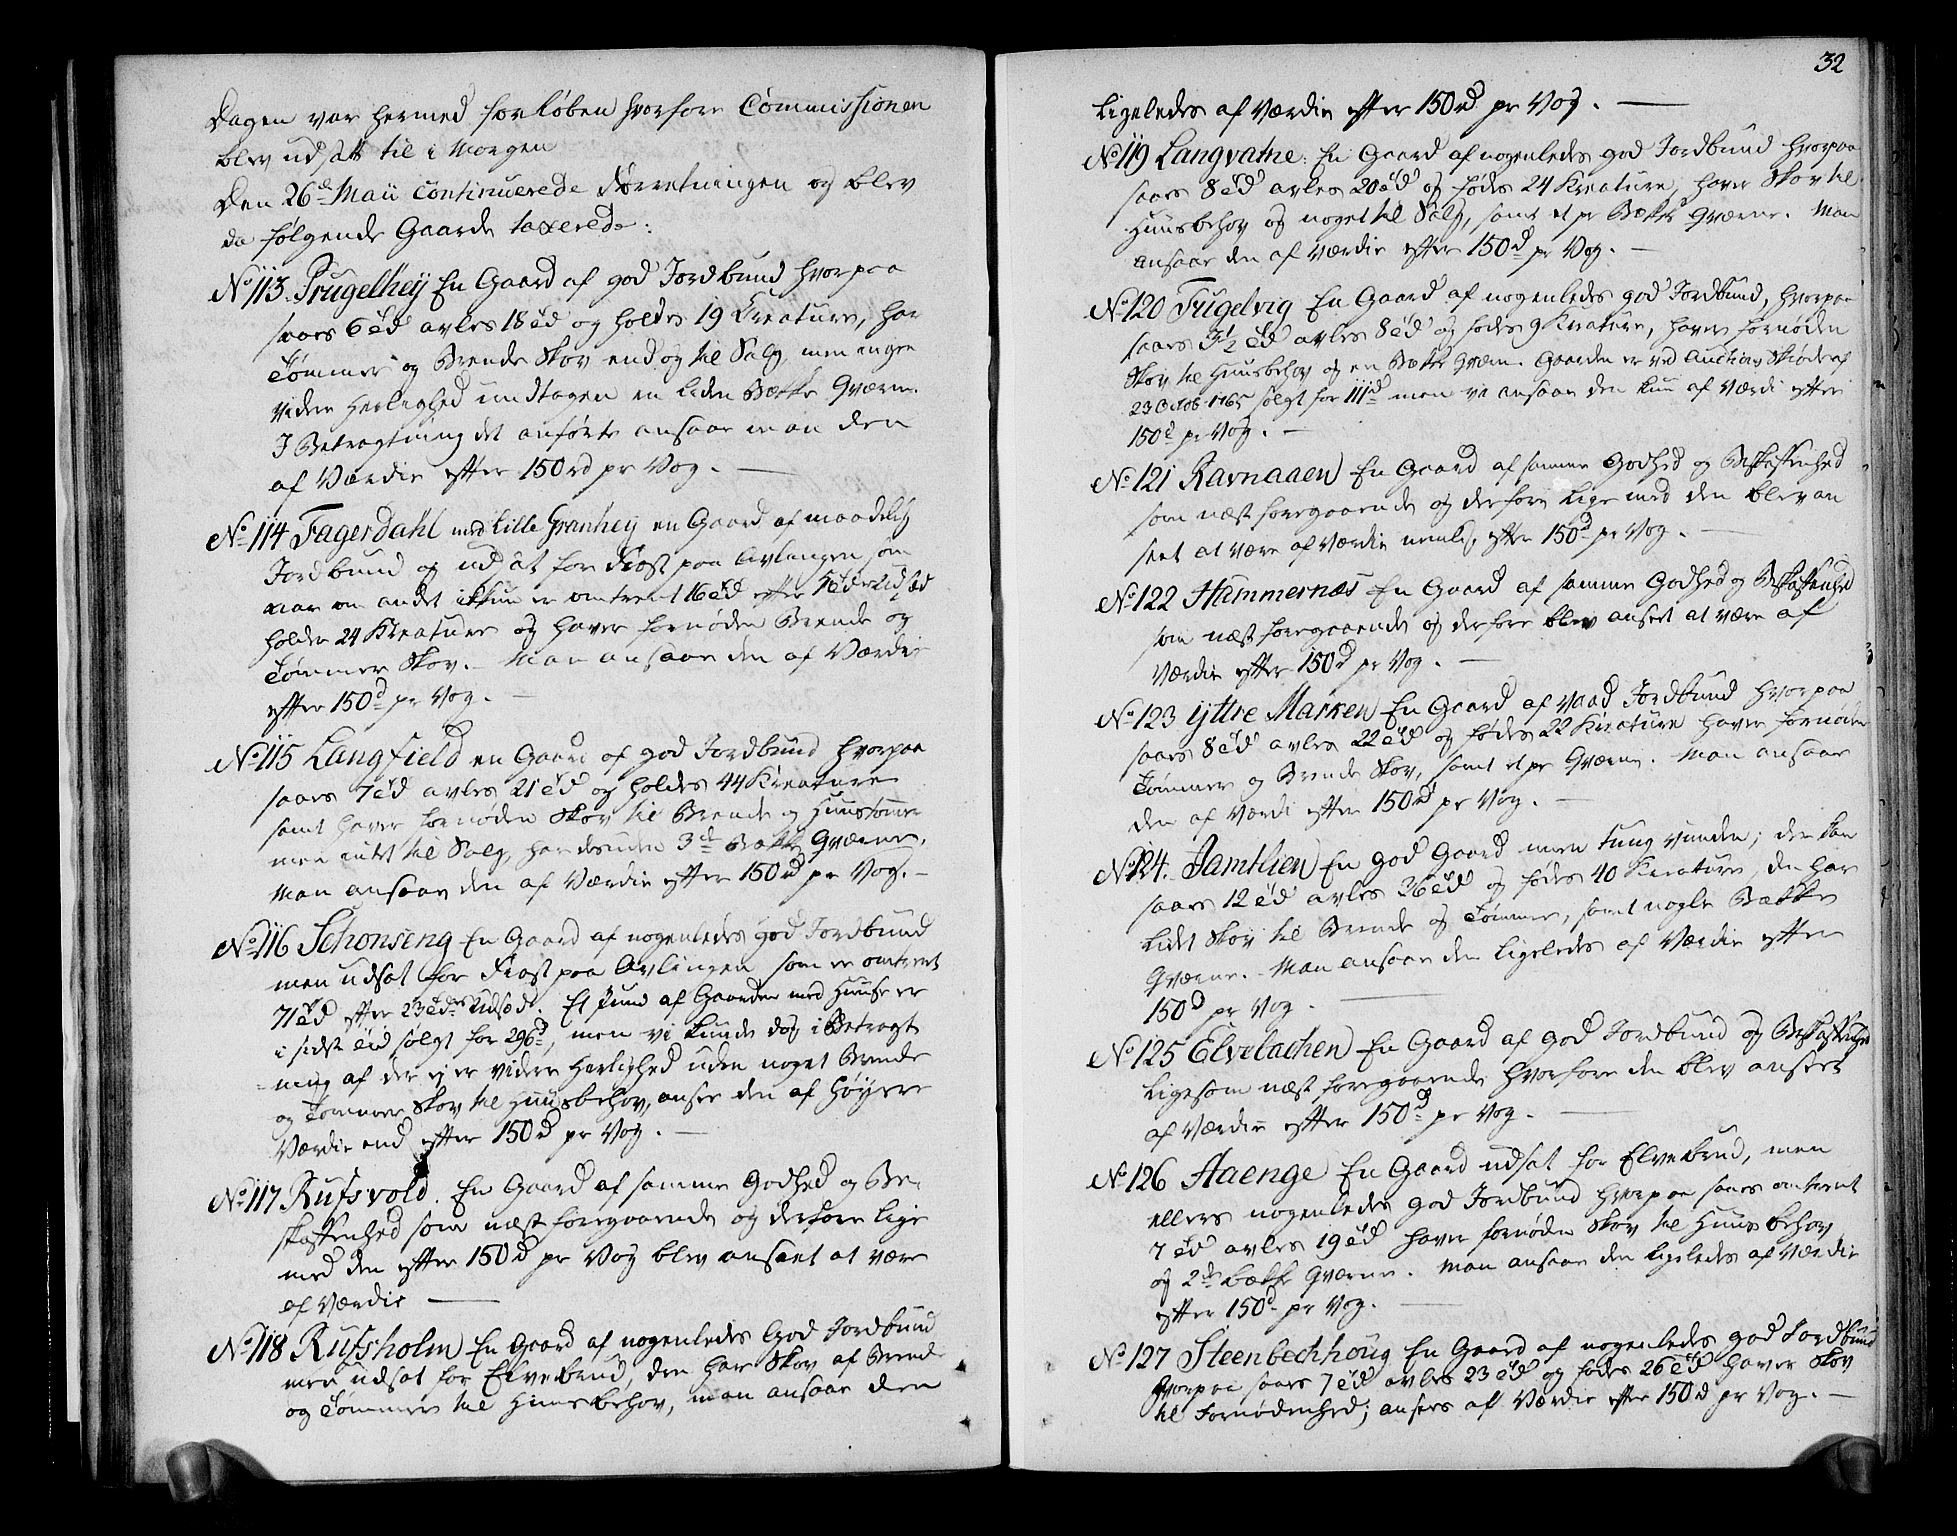 Dagen var hermed forløben hvorfore Commissionen
blev udsatt til i Morgen
Den 26de Maii Continuerede Forretningen og blev
da følgende Gaarde taxerede:
No 113. Prugelhey En Gaard af god Jordbund hvorpaa
saaes 6 td avles 18 td og holdes 19 Kreature, har
Tømmer og Brende Skov endog til Salg, men ingen
videre Herlighed undtagen en liden Bække Qværn.
I Betragtning det anførte ansaae man den
af Værdie efter 150 rd pr Vog. —
No 114 Fagerdahl med Lille Granhey en Gaard af maadelig
Jordbund og udsat for Frost paa Avlingen, som
naar om andet ikkun er omtrent 16 td efter 5 tdrs Udsæd
holder 24 Kreature og haver fornøden Brende og
Tømmer Skov. — Man ansaae den af Værdie
efter 150 d pr Vog. —
No 115 Langfield en Gaard af god Jordbund hvorpaa
saaes 7 td avles 21 td og holdes 44 Kreature
samt haver fornøden Skov til Brende og Huustømmer
men intet til Salg, har desuden 3de Bække Qværne.
Man ansaae den af Værdie efter 150 rd pr Vog. —
No 116 Schonseng En Gaard af nogenledes god Jordbund
men udsat for Frost paa Avlingen, som er omtrent
71 td efter 23 tdrs Udsæd. Et Pund af Gaarden med Huuse er
i sidste Tid solgt for 296 d, men vi kunde dog i Betragt
ning af der ej er videre Herlighed uden noget Brende
og Tømmer Skov til Huusbehov, ansee den af høyere
Værdie end efter 150 d pr Vog. —
No 117 Rufsvold. En Gaard af samme Godhed og Be-
skaffenhed som næst foregaaende og derfore lige
med den efter 150 d pr Vog blev anseet at være
af Værdie —
No 118 Rufsholm En Gaard af nogenledes God Jordbund
men udsat for Elvebrud, den har Skov af Brende
og Tømmer til Huusbehov, man ansaae den
32
ligeledes af Værdie efter 150 rd pr Vog. —
No 119 Langvatne: En Gaard af nogenledes god Jordbund hvorpaa
saaes 8 td avles 20 td og fødes 24 Kreature, haver Skov til
Huusbehov og noget til Salg, samt et pr Bække Qværne. Man
ansaae den af Værdie efter 150 d pr Vog. —
No 120 Trugelvig En Gaard af nogenledes god Jordbund, hvorpaa
saaes 3½ td avles 8 td og fødes 9 Kreature, haver fornøden
Skov til Huusbehov og en Bække Qværn. Gaarden er ved Auctions Skiøde af
23 Octob 1765 solgt for 111 d men vi ansaae den kun af Værdi efter
150 d pr Vog. —
No 121 Ravnaaen En Gaard af samme Godhed og Beskaffenhed
som næst foregaaende og derfore lige med den blev an
seet at være af Værdie nemlig efter 150 d pr Vog. —
No 122 Hammernæs En Gaard af samme Godhed og Beskaffenhed
som næst foregaaende og derfore blev anseet at være af
Værdie efter 150 d pr Vog. —
No 123 Yttre Marken En Gaard af vaad Jordbund hvorpaa
saaes 8 td avles 22 td og fødes 22 Kreature haver fornøden
Tømmer og Brende Skov, samt et pr Qværne. Man ansaae
den af Værdi efter 150 rd pr Vog. —
No 124. Jamtlien En god Gaard men tung vunden; der kan
saaes 12 td avles 36 td og fødes 40 Kreature, den har
lidet Skov til Brende og Tømmer, samt nogle Bække
Qværne. — Man ansaae den ligeledes af Værdie efter
150 d pr Vog. —
No 125 Elvebachen En Gaard af god Jordbund og Beskaffenhed
ligesom næst foregaaende hvorfore den blev anseet
af Værdie efter 150 d pr Vog. —
No 126 Aaenge En Gaard udsat for Elvebrud, men
ellers nogenledes god Jordbund hvorpaa saaes omtrent
7 td avles 19 td haver fornøden Skov til Huusbehov
og 2de bække Qværne. Man ansaae den ligeledes af Værdie
efter 150 d pr Vog. —
No 127 Steenbechhoug En Gaard af nogenledes god Jordbund
hvorpaa saaes 7 td avles 23 td og fødes 26 td haver Skov
til Fornødenhed; ansees af Værdie efter 150 d pr Vog. —